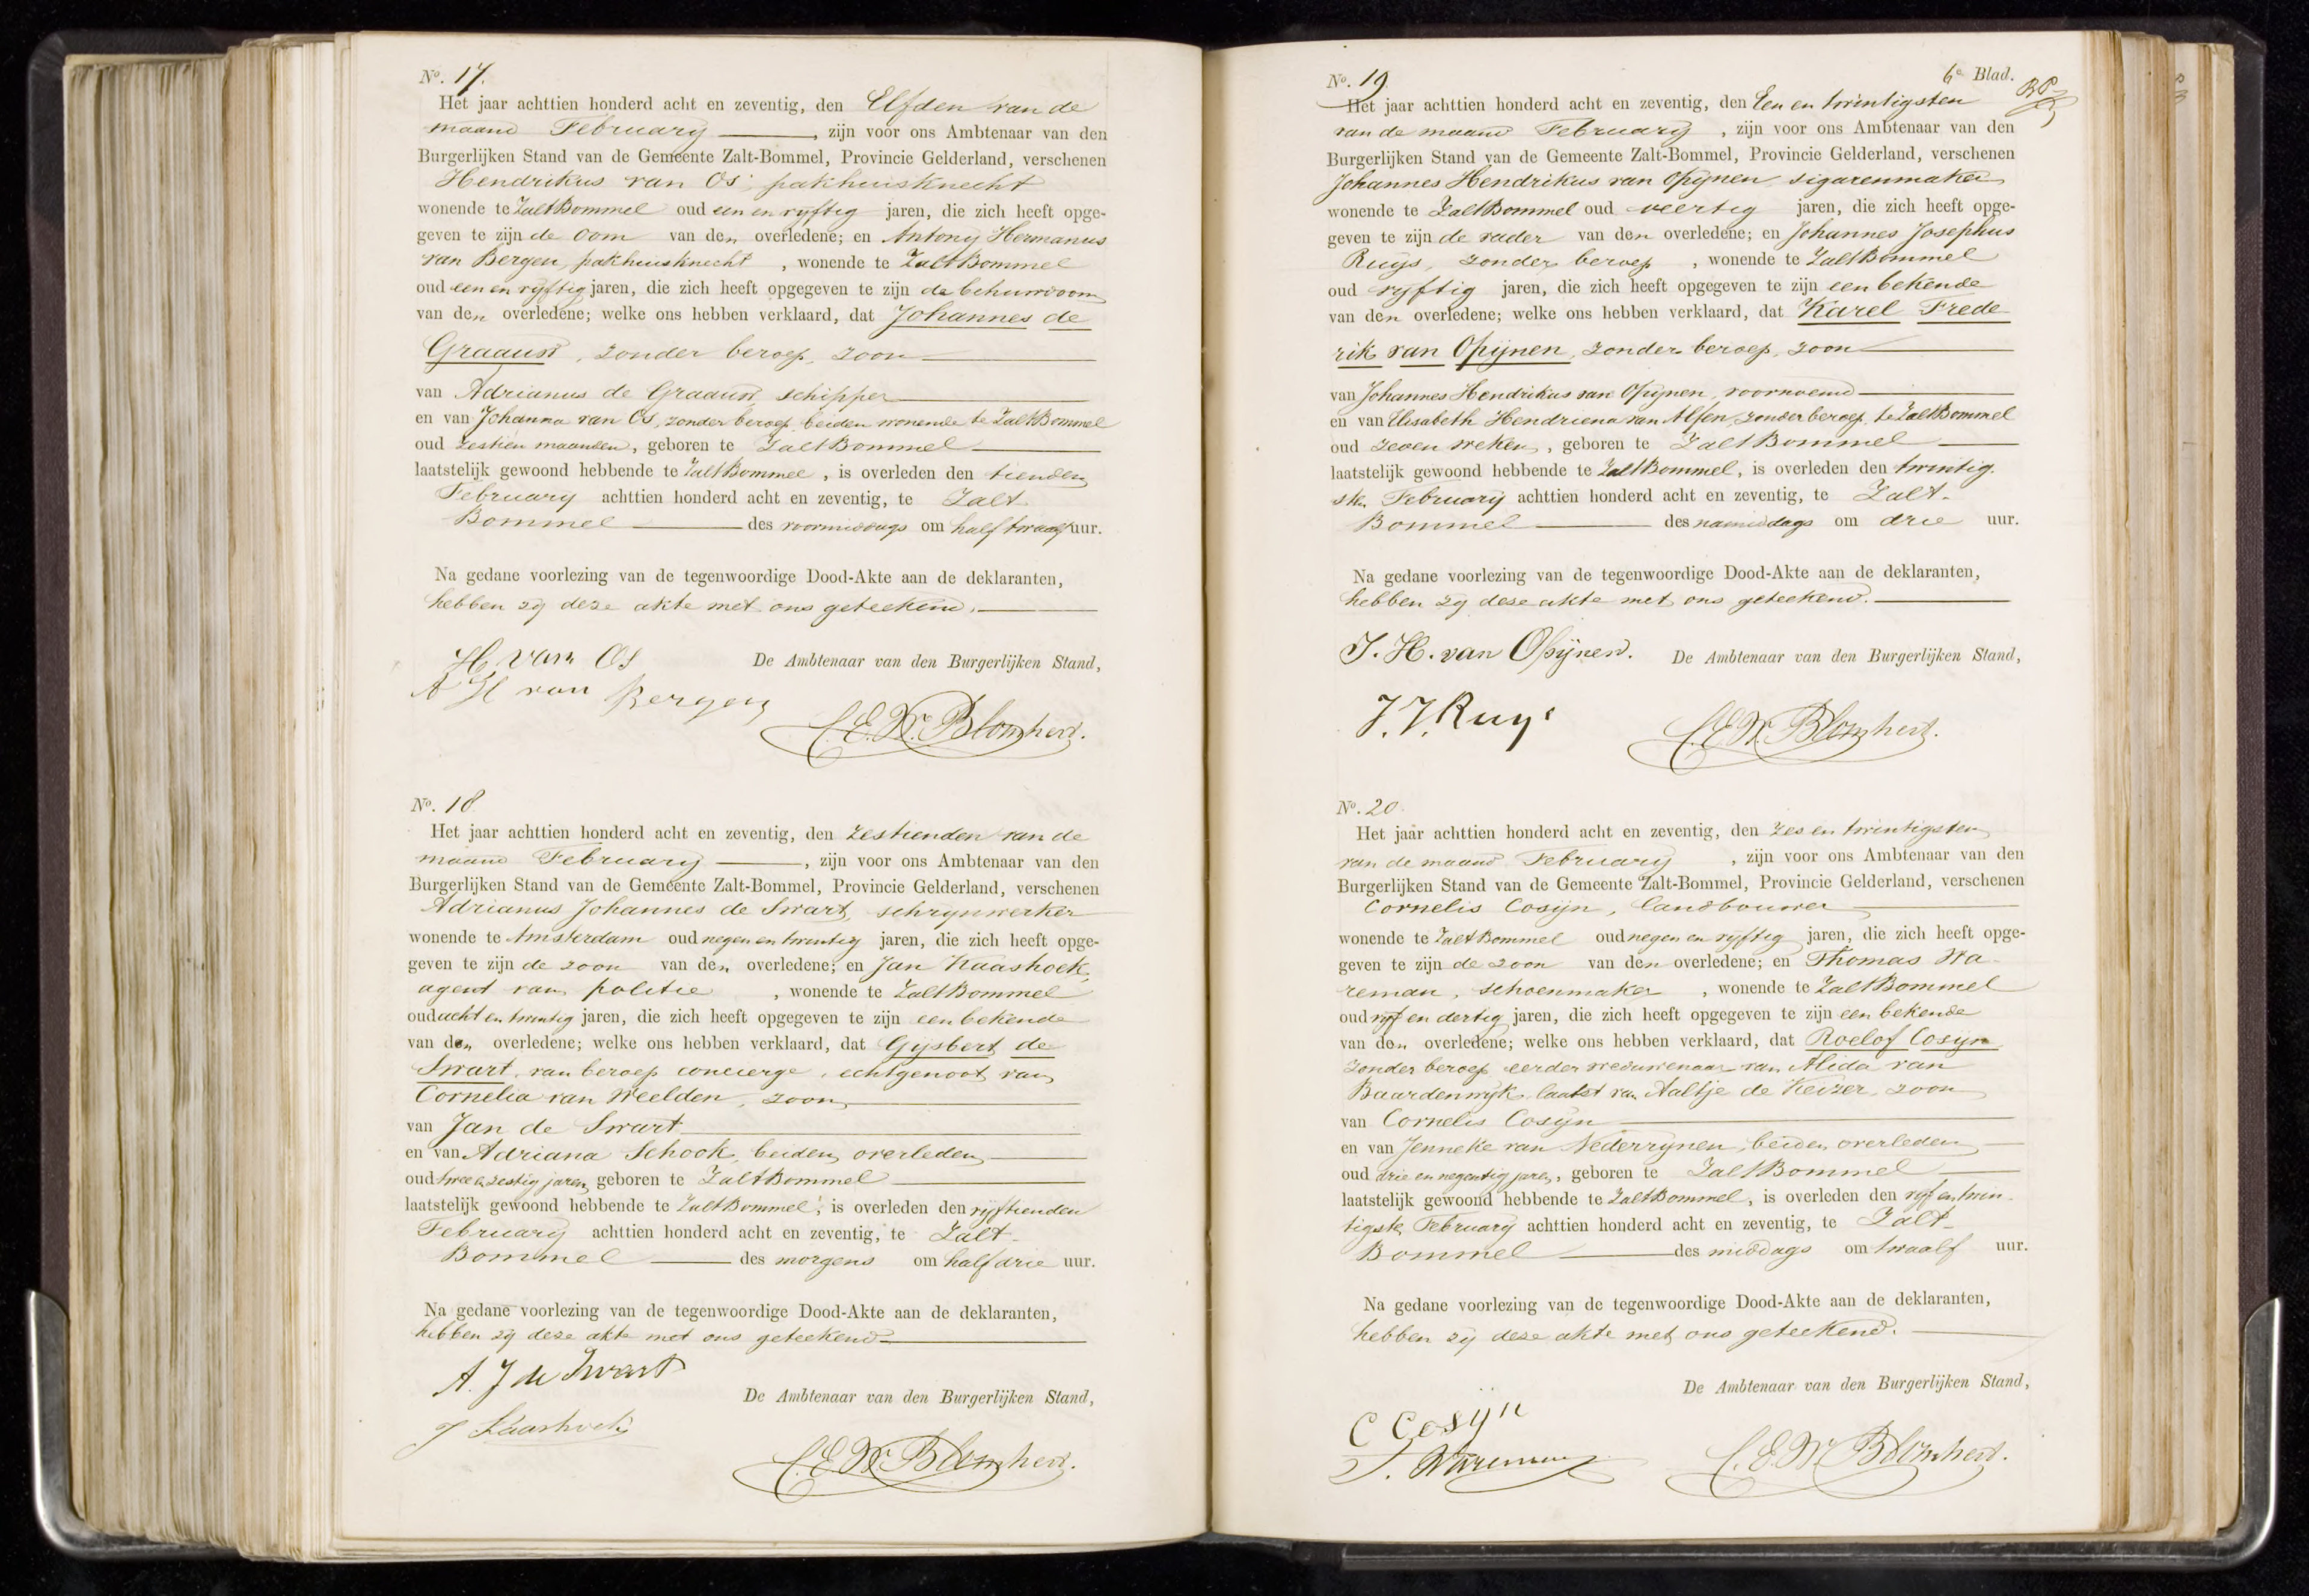 No. 17.
Het jaar achttien honderd acht en zeventig, den Elfden van de
maand February, zijn voor ons Ambtenaar van den
Burgerlijken Stand van de Gemeente Zalt-Bommel, Provincie Gelderland, verschenen
Hendrikus van Os, pakhuisknecht
wonende te ZaltBommel oud een en vyftig jaren, die zich heeft opge-
geven te zijn de oom van den overledene; en Antony Hermanus
van Bergen, pakhuisknecht, wonende te ZaltBommel
oud een en vyftig jaren, die zich heeft opgegeven te zijn de behuwdoom
van den overledene; welke ons hebben verklaard, dat Johannes de
Graauw, zonder beroep, zoon
van Adrianus de Graauw, schipper
en van Johanna van Os, zonder beroep, beiden wonende te ZaltBommel
oud zestien maanden, geboren te ZaltBommel
laatstelijk gewoond hebbende te ZaltBommel, is overleden den tienden
February achttien honderd acht en zeventig, te Zalt-
Bommel des voormiddags om half twaalf uur.
Na gedane voorlezing van de tegenwoordige Dood-Akte aan de deklaranten,
hebben zy deze akte met ons geteekend.
H. van Os
De Ambtenaar van den Burgerlijken Stand,
A H van Bergen
C.E.W. Blomhert.
No. 18
Het jaar achttien honderd acht en zeventig, den zestienden van de
maand February, zijn voor ons Ambtenaar van den
Burgerlijken Stand van de Gemeente Zalt-Bommel, Provincie Gelderland, verschenen
Adrianus Johannes de Swart, schrynwerker
wonende te Amsterdam oud negen en twintig jaren, die zich heeft opge-
geven te zijn de zoon van den overledene; en Jan Kaashoek,
agent van politie, wonende te ZaltBommel
oud acht en twintig jaren, die zich heeft opgegeven te zijn een bekende
van den overledene; welke ons hebben verklaard, dat Gysbert de
Swart, van beroep concierge, echtgenoot van
Cornelia van Weelden, zoon
van Jan de Swart
en van Adriana Schook, beiden overleden
oud twee en zestig jaren, geboren te ZaltBommel
laatstelijk gewoond hebbende te ZaltBommel, is overleden den vyftienden
February achttien honderd acht en zeventig, te Zalt-
Bommel des morgens om half drie uur.
Na gedane voorlezing van de tegenwoordige Dood-Akte aan de deklaranten,
hebben zy deze akte met ons geteekend
A. J de Swart
De Ambtenaar van den Burgerlijken Stand,
J Kaashoek
C.E.W. Blomhert.
No. 19.
6e Blad.
Het jaar achttien honderd acht en zeventig, den Een en twintigsten
van de maand February, zijn voor ons Ambtenaar van den
Burgerlijken Stand van de Gemeente Zalt-Bommel, Provincie Gelderland, verschenen
Johannes Hendrikus van Opijnen, sigarenmaker
wonende te ZaltBommel oud veertig jaren, die zich heeft opge-
geven te zijn de vader van den overledene; en Johannes Josephus
Ruijs, zonder beroep, wonende te ZaltBommel
oud vyftig jaren, die zich heeft opgegeven te zijn een bekende
van den overledene; welke ons hebben verklaard, dat Karel Frede-
rik van Opijnen, zonder beroep, zoon
van Johannes Hendrikus van Opijnen, voornoemd
en van Elisabeth Hendriena van Alfen, zonder beroep, te ZaltBommel
oud zeven weken, geboren te ZaltBommel
laatstelijk gewoond hebbende te ZaltBommel, is overleden den twintig-
sten February achttien honderd acht en zeventig, te Zalt-
Bommel des namiddags om drie uur.
Na gedane voorlezing van de tegenwoordige Dood-Akte aan de deklaranten,
hebben zy deze akte met ons geteekend.
J. H. van Opijnen.
De Ambtenaar van den Burgerlijken Stand,
J. J. Ruys
C.E.W. Blomhert.
No. 20
Het jaar achttien honderd acht en zeventig, den zes en twintigsten
van de maand February, zijn voor ons Ambtenaar van den
Burgerlijken Stand van de Gemeente Zalt-Bommel, Provincie Gelderland, verschenen
Cornelis Cosijn, landbouwer
wonende te ZaltBommel oud negen en vyftig jaren, die zich heeft opge-
geven te zijn de zoon van den overledene; en Thomas Wa-
reman, schoenmaker, wonende te ZaltBommel
oud vyf en dertig jaren, die zich heeft opgegeven te zijn een bekende
van den overledene; welke ons hebben verklaard, dat Roelof Cosijn
zonder beroep eerder weduwenaar van Alida van
Baardenwyk, laatst van Aaltje de Keizer, zoon
van Cornelis Cosijn
en van Jenneke van Nederrynen, beiden overleden
oud drie en negentig jaren, geboren te ZaltBommel
laatstelijk gewoond hebbende te ZaltBommel, is overleden den vyf en twin-
tigsten February achttien honderd acht en zeventig, te Zalt-
Bommel des middags om twaalf uur.
Na gedane voorlezing van de tegenwoordige Dood-Akte aan de deklaranten,
hebben zy deze akte met ons geteekend.
De Ambtenaar van den Burgerlijken Stand,
C Cosijn
T. Wareman
C.E.W. Blomhert.